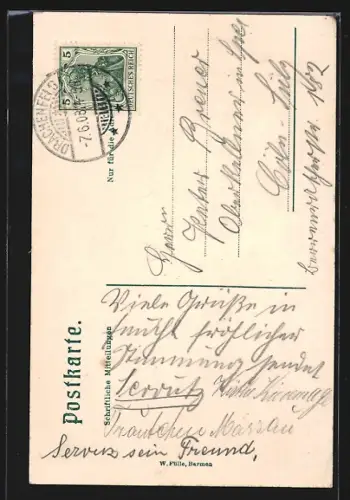 Postkarte.
Schriftliche Mitteilungen
Nur für die
5 5
DEUTSCHES REICH
DRACHENFELS
-7.6.05
Herrn
Peter Breuer
Oberkellner im
Cöln Sülz
Berrenratherstr 182
Viele Grüße in
feucht fröhlicher
Stimmung sendet
Träutchen
Servus sein Freund,
W. Fülle, Barmen